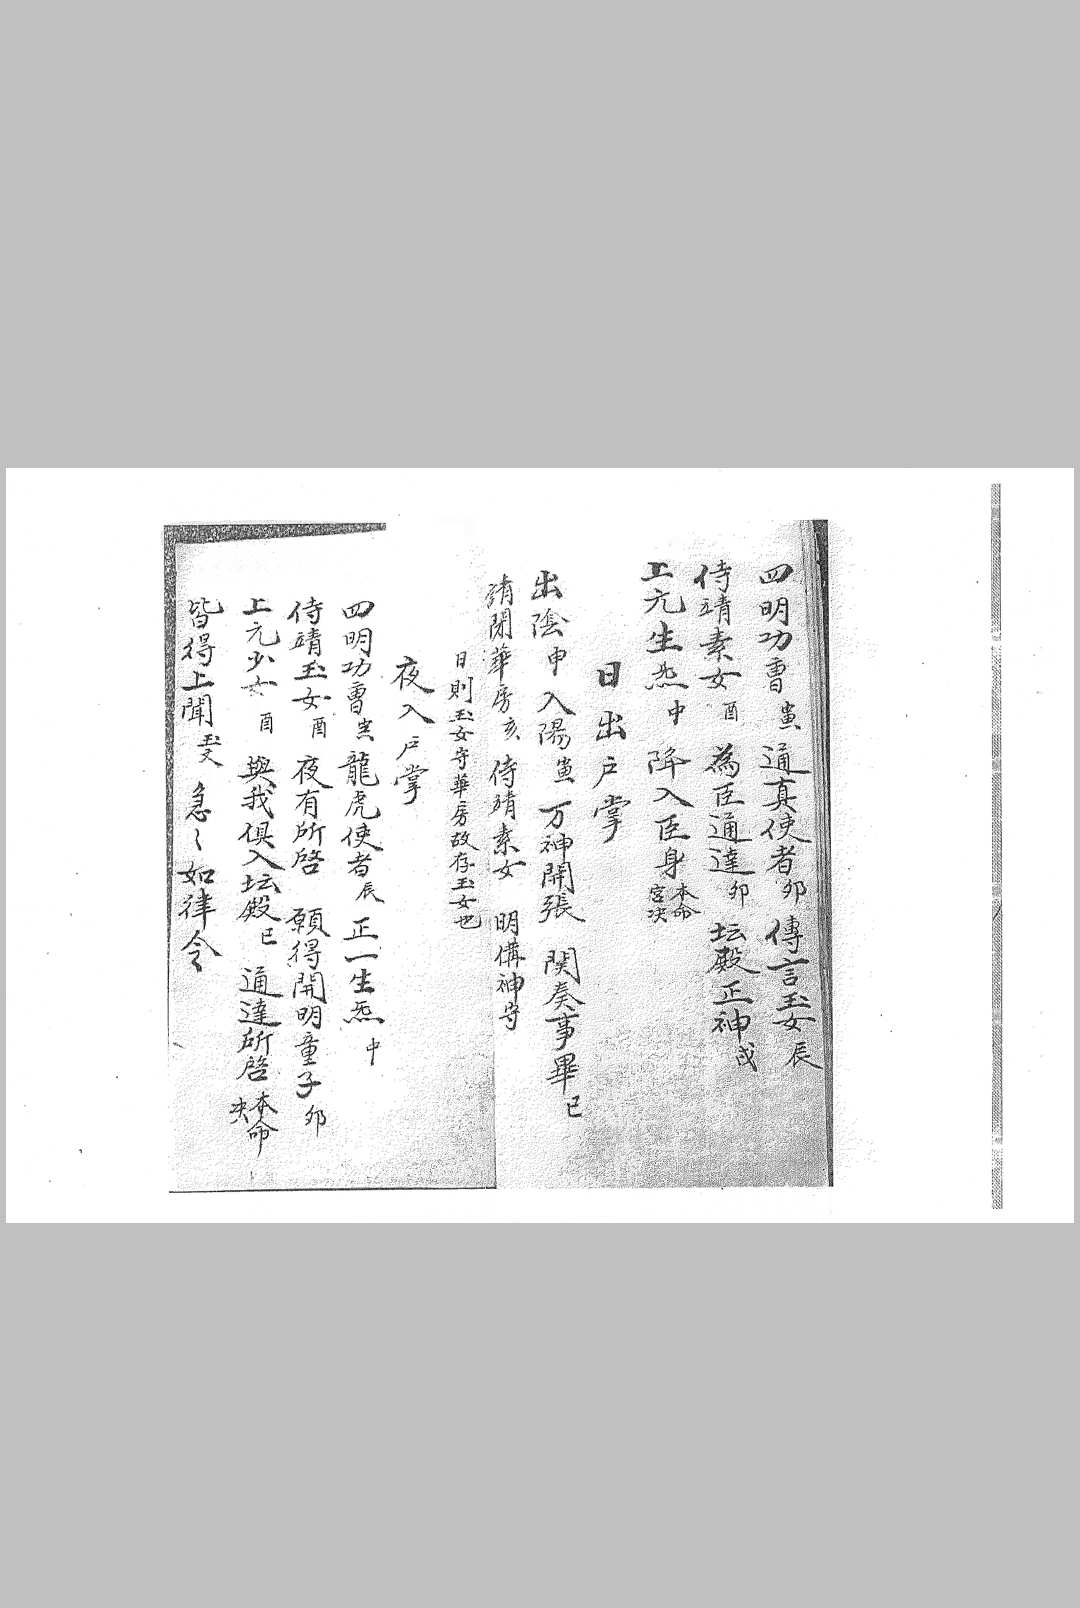 四明功曹寅 通真使者卯 傳言玉女辰
侍靖素女酉 為臣通達卯 坛殿正神戌
上元生炁中 降入臣身本命宮决
日出户掌
出陰申入陽寅 万神開張 関奏事畢已
請閉華房亥 侍靖素女 明備神守
日則玉女守華房故存玉女也
夜入户掌
四明功曹寅龍虎使者辰 正一生炁中
侍靖玉女酉 夜有所啓 願得開明童子卯
上元少女酉 與我俱入坛殿已 通達所啓本命决
皆得上聞 急〻如律令